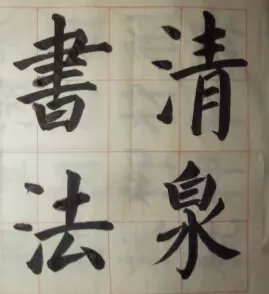 清泉
書法